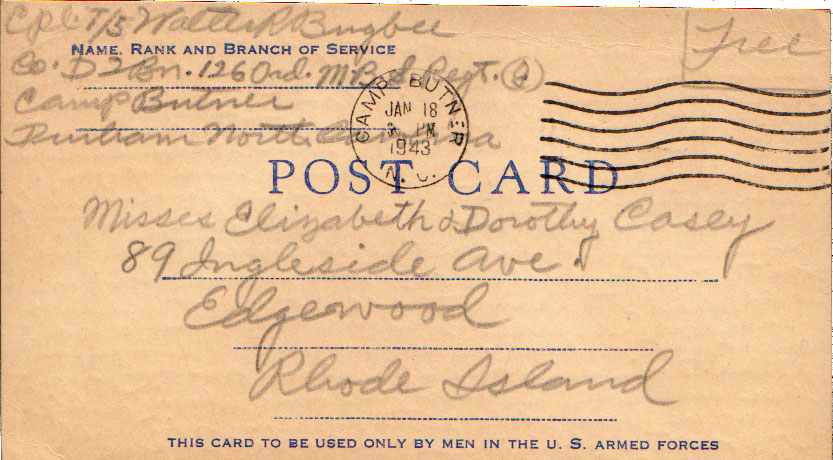 Cpl. T/5 Walter R Bugbee
Free
NAME, RANK AND BRANCH OF SERVICE
Co. D 2 Bn. 126 Ord. M.B.S. Regt. (Q)
Camp Butner
Durham North Carolina
CAMP BUTNER
JAN 18
PM
1943
N. C.
POST CARD
Misses Elizabeth & Dorothy Casey
89 Ingleside Ave.
Edgewood
Rhode Island
THIS CARD TO BE USED ONLY BY MEN IN THE U. S. ARMED FORCES